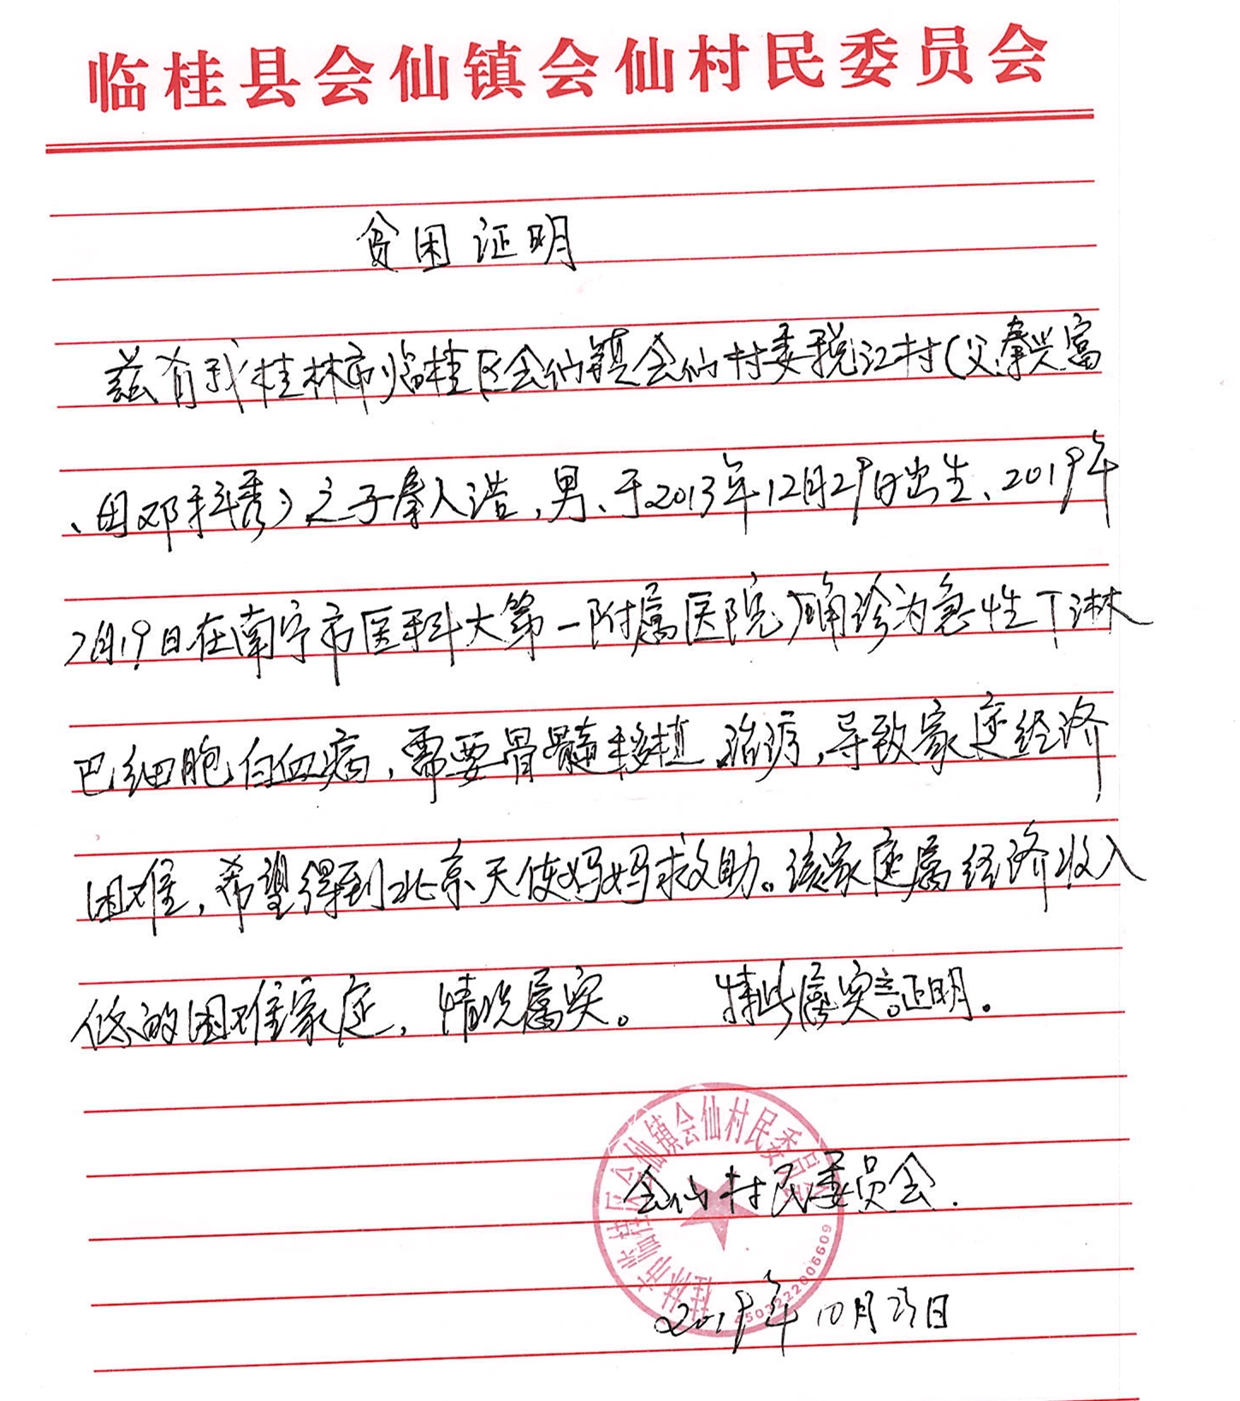 临桂县会仙镇会仙村民委员会
贫困证明
兹有我桂林市临桂区会仙镇会仙村委税江村(父:秦兴富
、母邓科秀)之子秦人浩,男、于2013年12月29日出生、2019年
2月19日在南宁市医科大第一附属医院确诊为急性T淋
巴细胞白血病,需要骨髓移植治疗,导致家庭经济
困难,希望得到北京天使妈妈救助。该家庭属经济收入
低的困难家庭,情况属实。 特此属实证明。
桂林市临桂区会仙镇会仙村民委员会
会仙村民委员会.
4503222006609
2019年10月 日